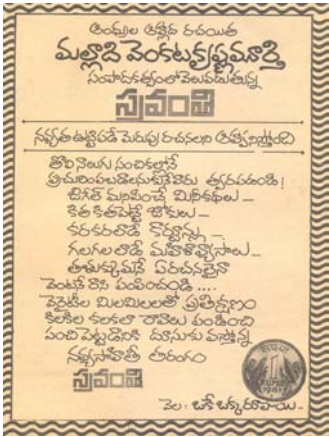 ఆంధ్రుల అభిమాన రచయిత
మల్లాది వెంకటకృష్ణమూర్తి
సంపాదకత్వంలో వెలువడుతున్న
స్రవంతి
నవ్యత ఉట్టిపడే మెరుపు రచనలని ఆహ్వానిస్తోంది
తొలి నాలుగు సంచికల్లోనే
ప్రచురింపబడాలనుకునేవారు త్వరపడండి!
జిగేల్ మనిపించే మినీకథలు -
కితకితపెట్టే జోకులు -
కరకరలాడే కార్టూన్లు -
గలగలలాడే మహిళావ్యాసాలు -
తళుక్కుమనే ఏ రచనలైనా
వెంటనే రాసి పంపించండి ....
వెరైటీల మిలమిలలతో ప్రతిక్షణం
కిలకిల కలకలా రావాలు పండించి
పంచిపెట్టడానికి దూసుకు వస్తోన్న
నవ్యసాహితీ తరంగం
స్రవంతి
1
RUPEE
వెల : ఒకే ఒక్క రూపాయి -